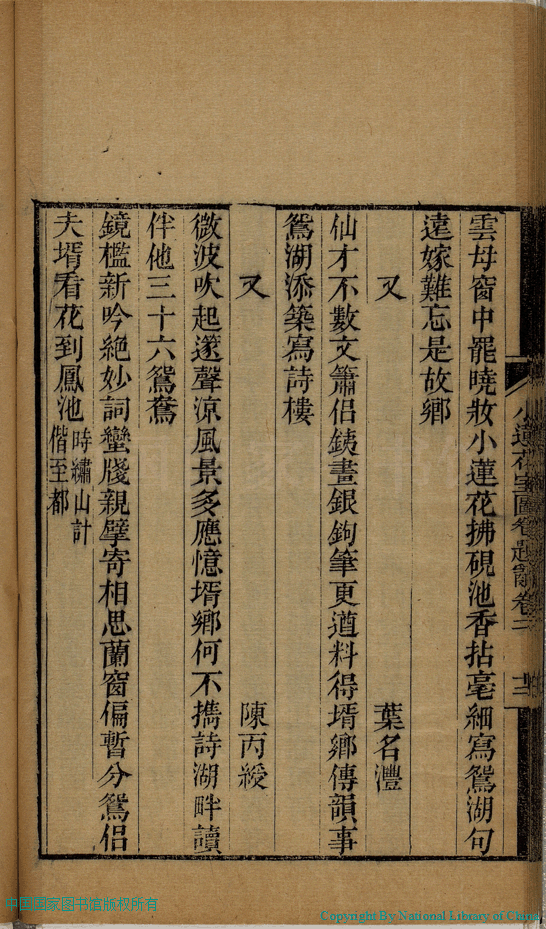 雲母窗中罷曉妝小蓮花拂硯池香拈毫細寫鴛湖句
遠嫁難忘是故鄉
又 葉名灃
仙才不數文簫侶銕畫銀鉤筆更遒料得壻鄉傳韻事
鴛湖添築寫詩樓
又 陳丙綬
微波吹起邃聲涼風景多應憶壻鄉何不攜詩湖畔讀
伴他三十六鴛鴦
鏡檻新吟絕妙詞蠻牋親擘寄相思蘭窗偏暫分鴛侶
夫壻看花到鳳池時繡山計
偕至都
小蓮花室圖卷題辭卷二
中国国家图书馆版权所有
Copyright By National Library of China